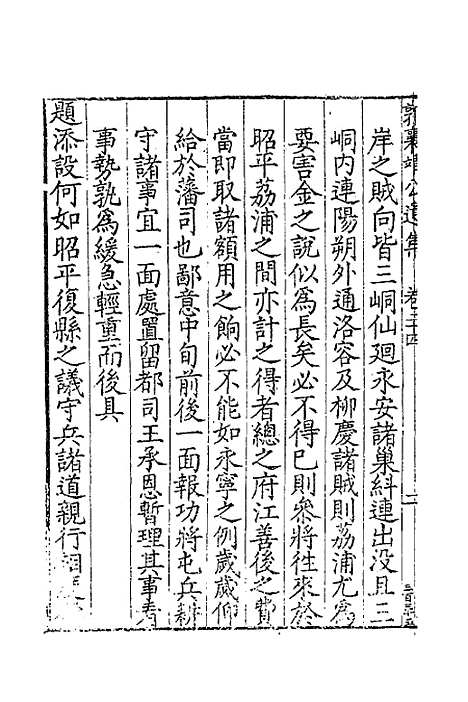 郭襄靖公遺集 卷二十四
二
岸之賊向皆三峒仙廻永安諸巢糾連出没且三
峒内連陽朔外通洛容及柳慶諸賊則荔浦尤為
要害金之說似為長矣必不得已則叅將往來於
昭平荔浦之間亦計之得者總之府江善後之費
當即取諸額用之餉必不能如永寧之例歲歲仰
給於藩司也鄙意中旬前後一面報功將屯兵耕
守諸事宜一面處置留都司王承恩暫理其事看
事勢孰為緩急輕重而後具
題添設何如昭平復縣之議守兵諸道親行